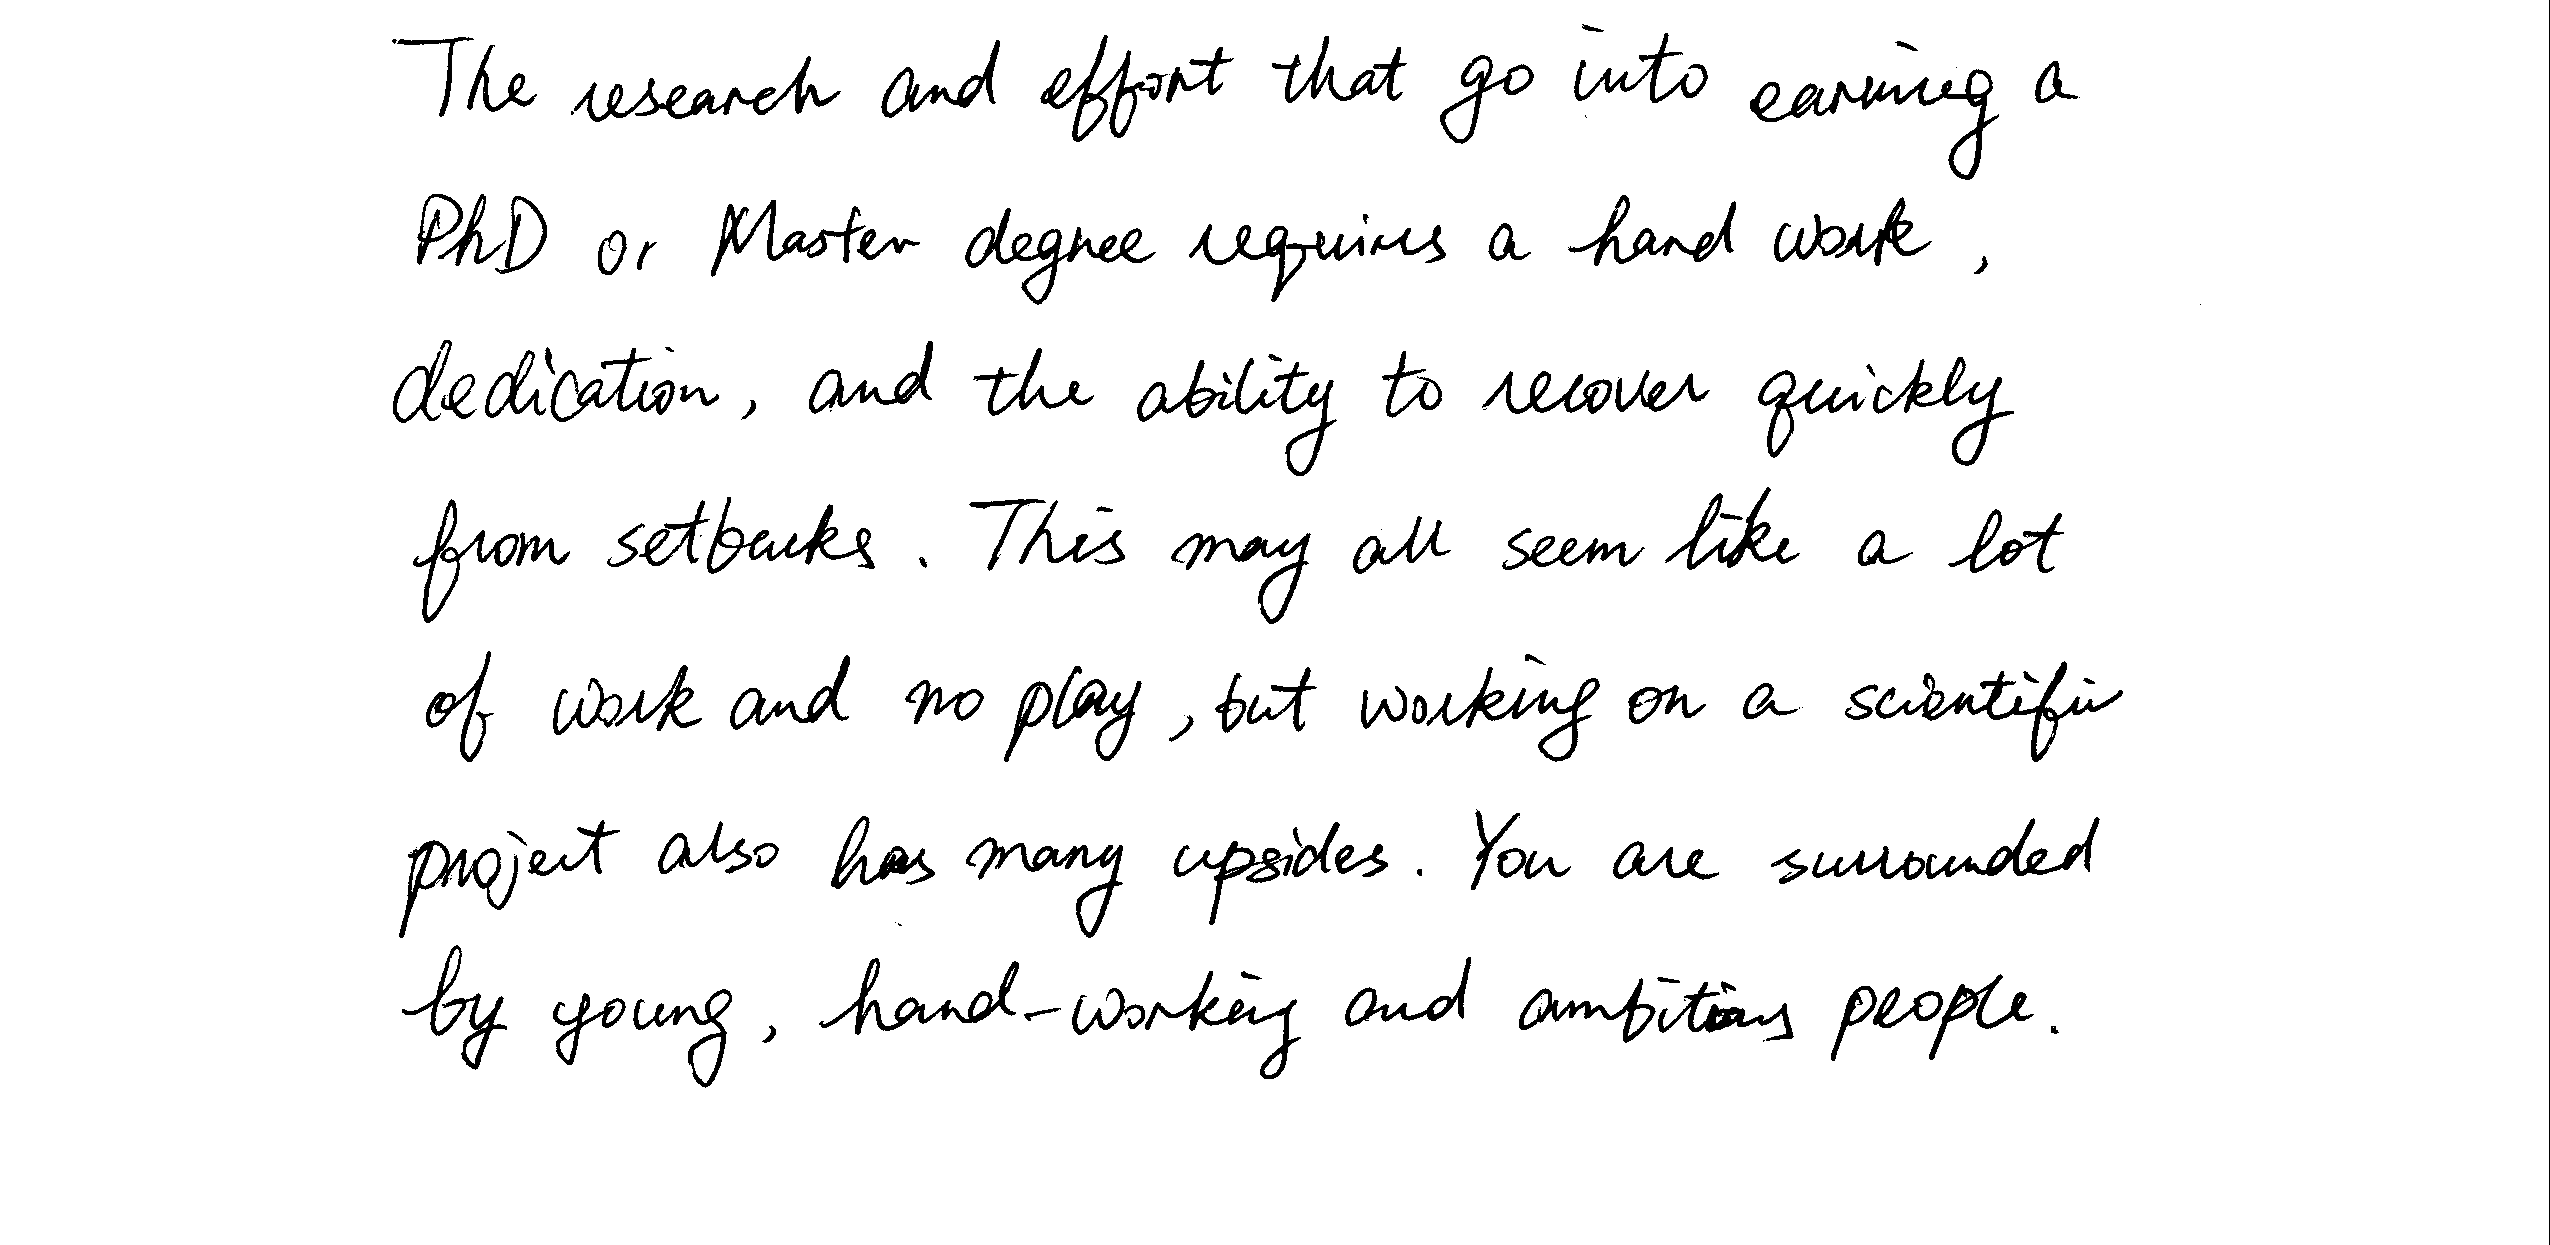 The research and effort that go into earning a
PhD or Master degree requires a hard work,
dedication, and the ability to recover quickly
from setbacks. This may all seem like a lot
of work and no play, but working on a scientific
project also has many upsides. You are surrounded
by young, hard-working and ambitious people.